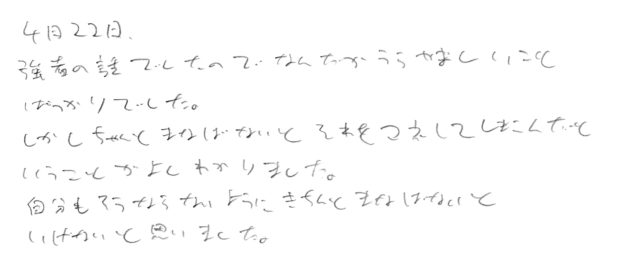 4日22日.
強者の話でしたのでなんだかうらやましいこと
ばっかりでした。
しかしちゃんとまなばないとそれをつえしてしまこんだと
いうことがよくわかりました。
自分もそうならないようにきちんとまなばないと
いけないと思いました。